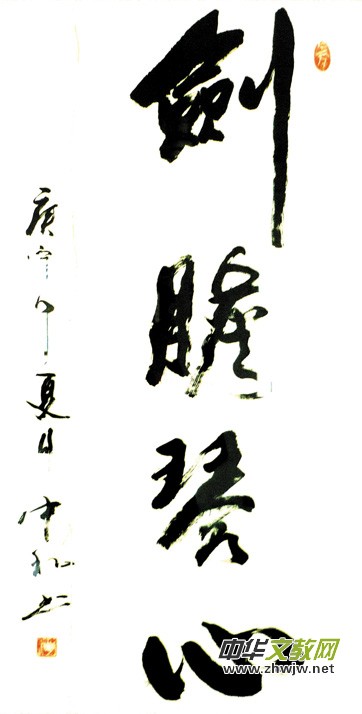 劍膽琴心
庚寅年夏月中和書
中华文教网
www.zhwjw.net